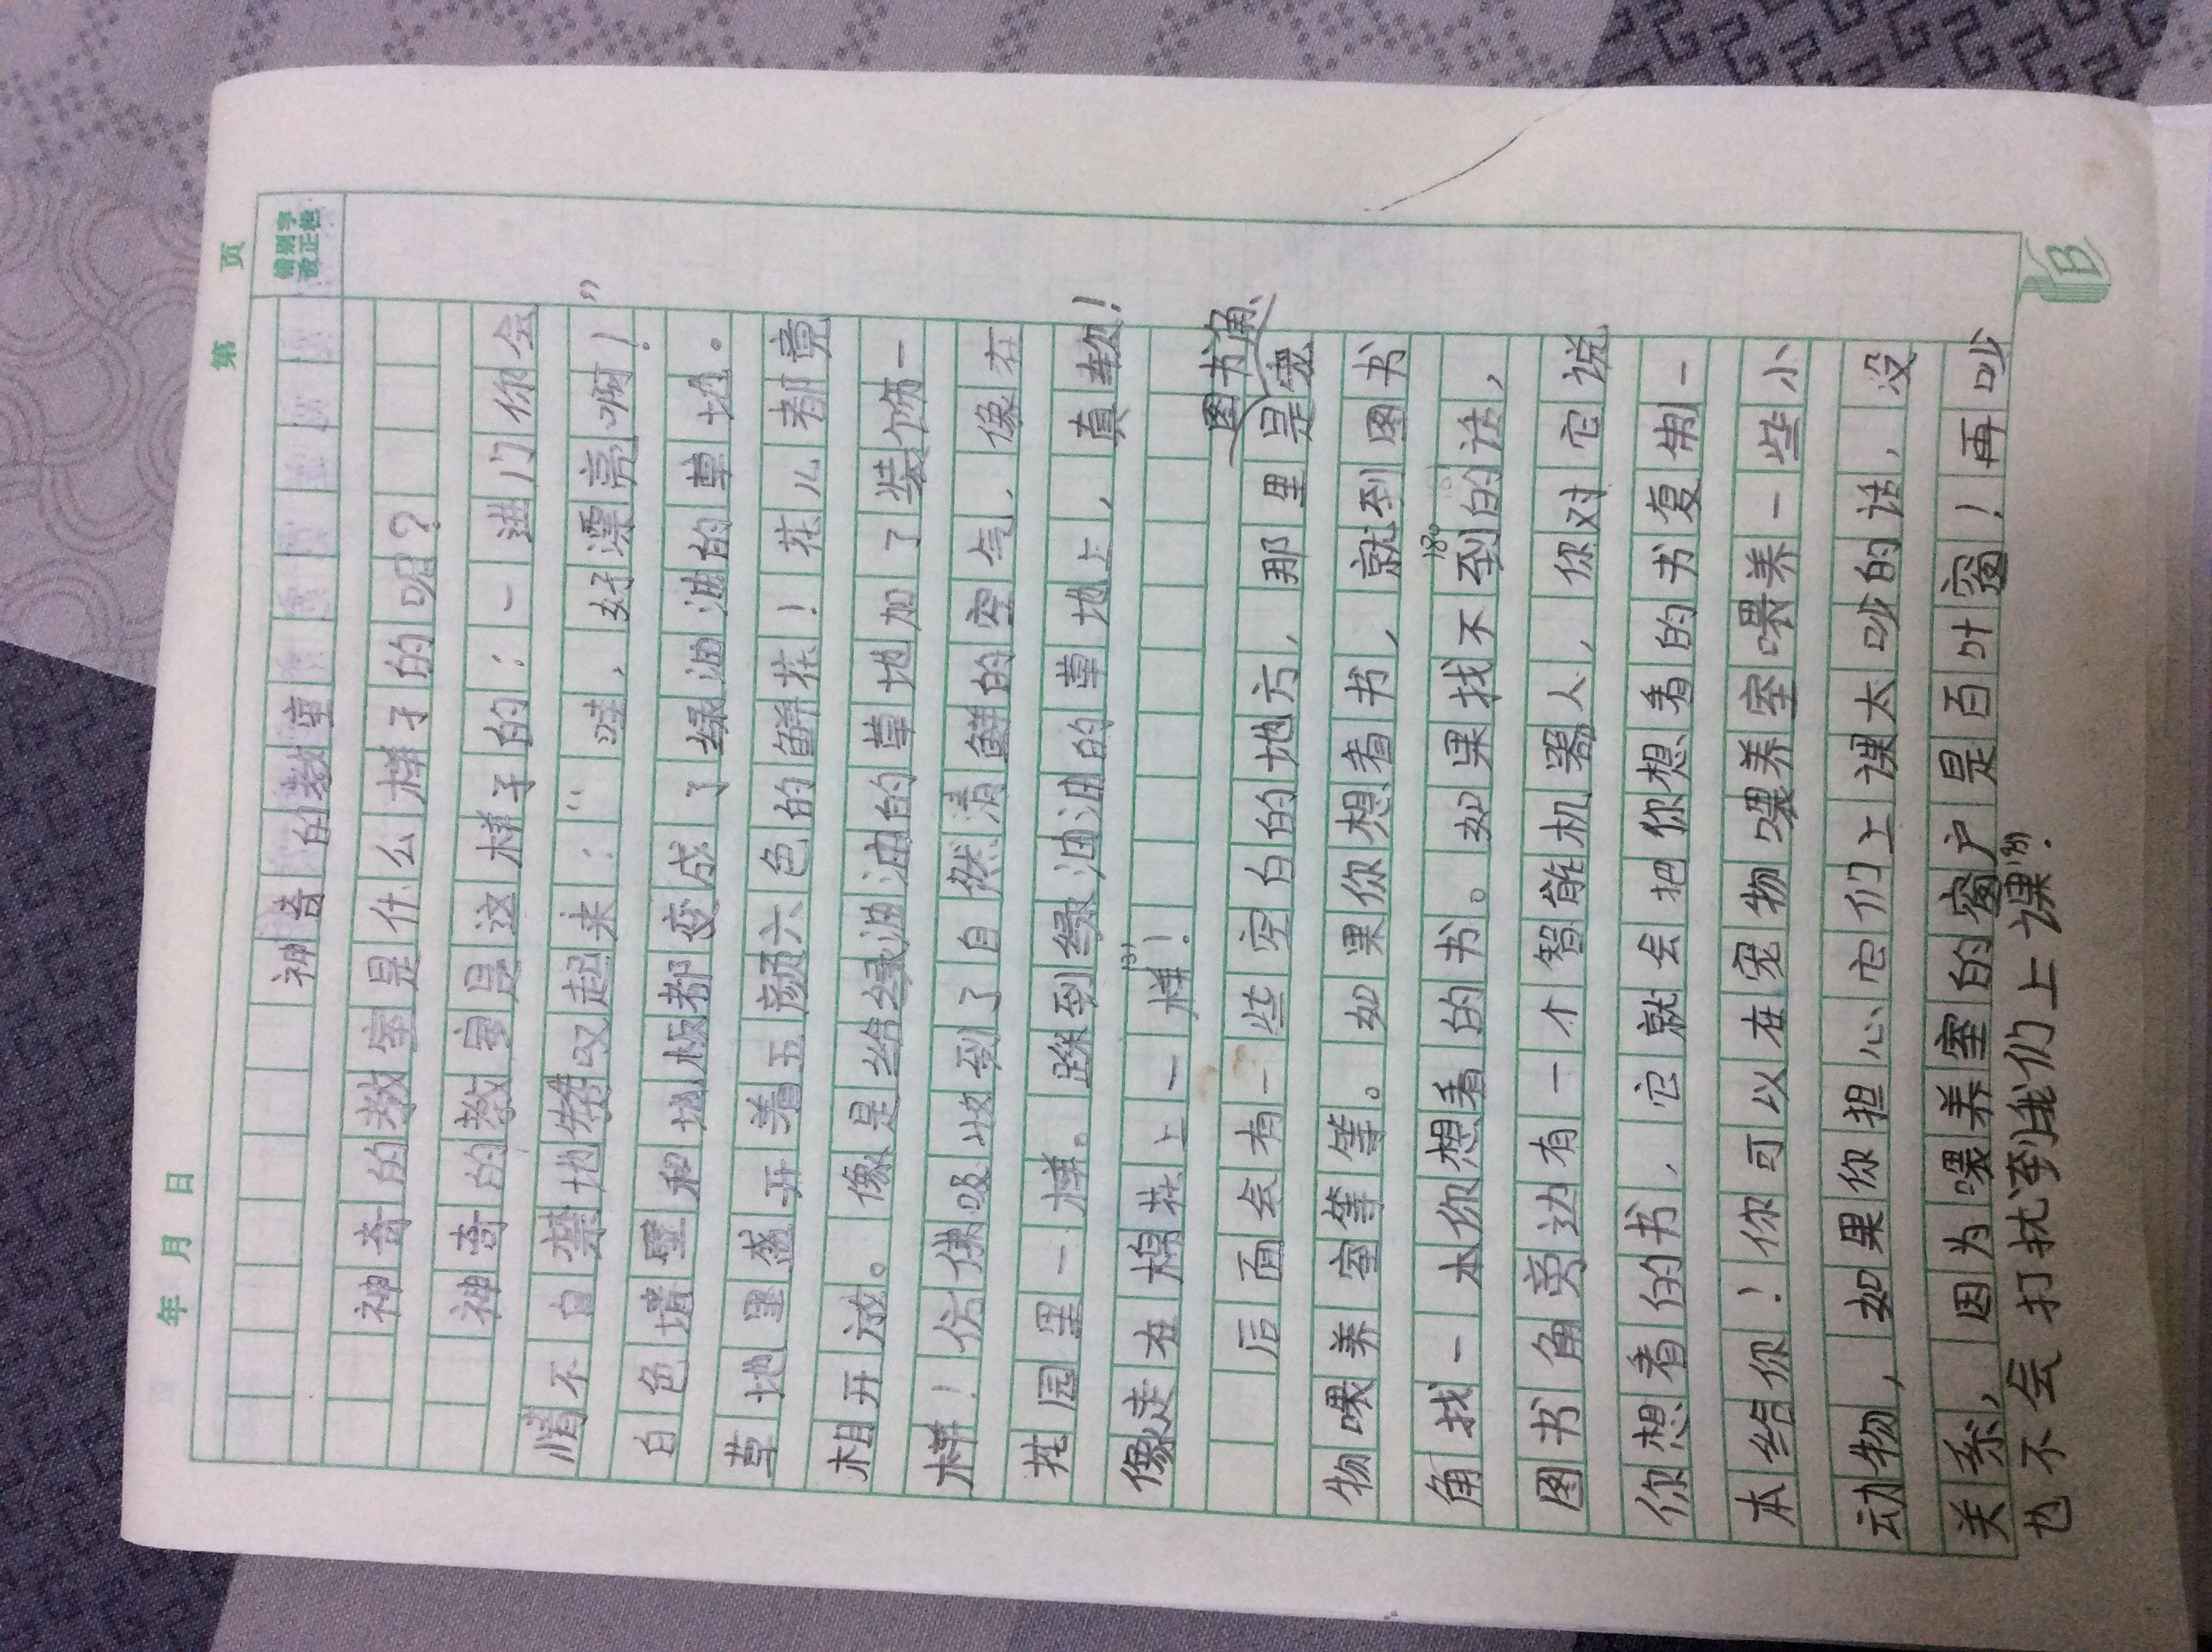 年 月 日 第 页
错别字
改正栏
神奇的教室
神奇的教室是什么样子的呢？
神奇的教室是这样子的：一进门你会
情不自禁地赞叹起来：“哇，好漂亮啊！”
白色墙壁和地板都变成了绿油油的草地。
草地里盛开着五颜六色的鲜花！花儿都竟
相开放。像是给绿油油的草地加了装饰一
样！仿佛吸收到了自然清鲜的空气，像在
花园里一样。踩到绿油油的草地上，真软！
像走在棉花上一样！
131
图书角、
后面会有一些空白的地方，那里是宠
物喂养室等等。如果你想看书，就到图书
角找一本你想看的书。如果找不到的话，
180
图书角旁边有一个智能机器人，你对它说
你想看的书，它就会把你想看的书复制一
本给你！你可以在宠物喂养室喂养一些小
动物，如果你担心它们上课太吵的话，没
关系，因为喂养室的窗户是百叶窗！再吵
也不会打扰到我们上课.
B